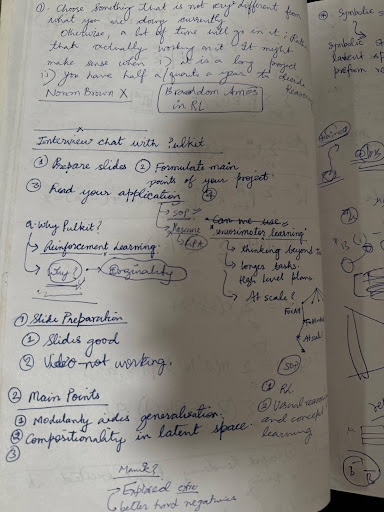 ①. Choose something that is not very different from
what you are doing currently.
Otherwise, a lot of time will go in it; rather
that actually working on it. It might
make sense when i) it is a long project
ii) you have half a/quarts a year to decide
Noam Brown X
Brandon Amos
in RL
Interview chat with Pulkit
① Prepare slides ② Formulate main
points of your project
③ Read your application ④
→ SOP
→ Resume
→ LPA
"Can we use"
"sensorimotor learning"
Q. Why Pulkit?
↳ Reinforcement Learning.
↳ Why? Originality
↳ thinking beyond
↳ longer tasks.
High level plans
↳ At scale?
① Slide Preparation
① Slides good
② Video not working.
SOP
① RL
② Visual
and concept
learning
② Main Points
① Modularity aides generalisation.
② Compositionality in latent space.
③
→ Explored
↳ better hard negatives
⊕ Symbolic
Symbolic
latent